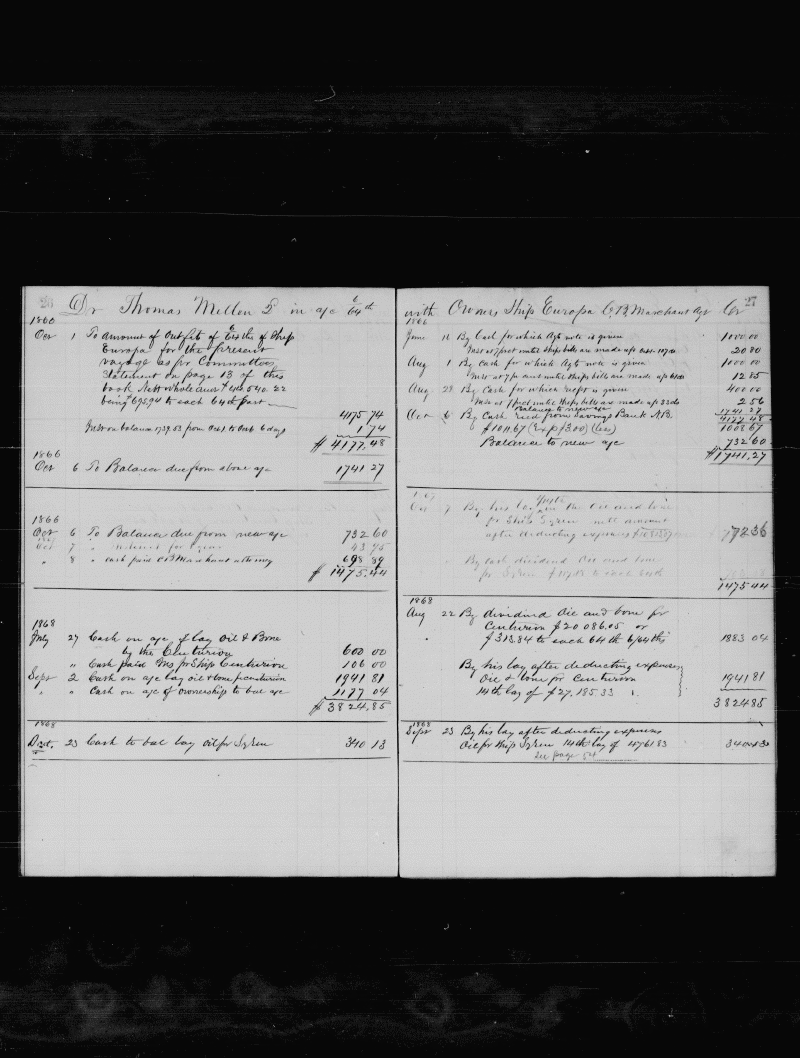 26 Dr Thomas Mellen 2d in a/c 6/64th
1866
Oct 1 To amount of Outfits of 6/64ths of Ship
Europa for the present
voyage as pr Committees
Statement on page 13 of this
book Nett whole amt $44,540.22
being 695,94 to each 64th part
4175 74
Int on balance 1739.53 from Oct 1 to Oct 6 days 1 74
$ 4177,48
1866
Oct 6 To Balance due from above a/c 1741 27
1866
Oct 6 To Balance due from new a/c 732 60
Oct 7 " Interest for 1 year 43 95
" 8 " Cash paid C B Marchant attorney 698 89
$ 1475.44
1868
July 27 Cash on a/c of lay Oil & Bone
by the Centurion 600 00
" Cash paid Ins pr Ship Centurion 106 00
Sept 2 Cash on a/c lay oil & bone pr Centurion 1941 81
" " Cash on a/c of ownership to bal a/c 1177 04
$ 3824,85
1868
23 Cash to bal lay oil pr Syren 340 13
with Owners Ship Europa C. B. Marchant Agt Cr 27
1866
June 11 By Cash for which Agts note is given 1000.00
Int at 7 pct until Ships bills are made up 20 80
Aug 1 By Cash for which Agts note is given 1000 00
Int at 7 pr cent until Ships bills are made up 12 85
Aug 28 By Cash for which rect is given 400 00
Int at 7 pct until Ships bills are made up 33 ds 2 56
Balance to new a/c 1741.27
4177.48
Oct 6 By Cash recd from Savings Bank N.B.
$1011,67 (Exp $3.00) (less) 1008 67
Balance to new a/c 732 60
$1741,27
1867
Oct 7 By his lay on the Oil and bone
pr Ship Syren nett amount
after deducting expenses 772 36
By cash dividend Oil and bone
pr Syren to each 64th
1475 44
1868
Aug 22 By dividend Oil and bone pr
Centurion $20086.05 or
" $313.84 to each 64th 6/64ths 1883 04
By his lay after deducting expenses
Oil & bone pr Centurion 1941 81
14th lay of $27,185.33
3824 85
1868
Sept 23 By his lay after deducting expenses
Oil pr Ship Syren 14th lay of 4761 83 340 13
See page 54